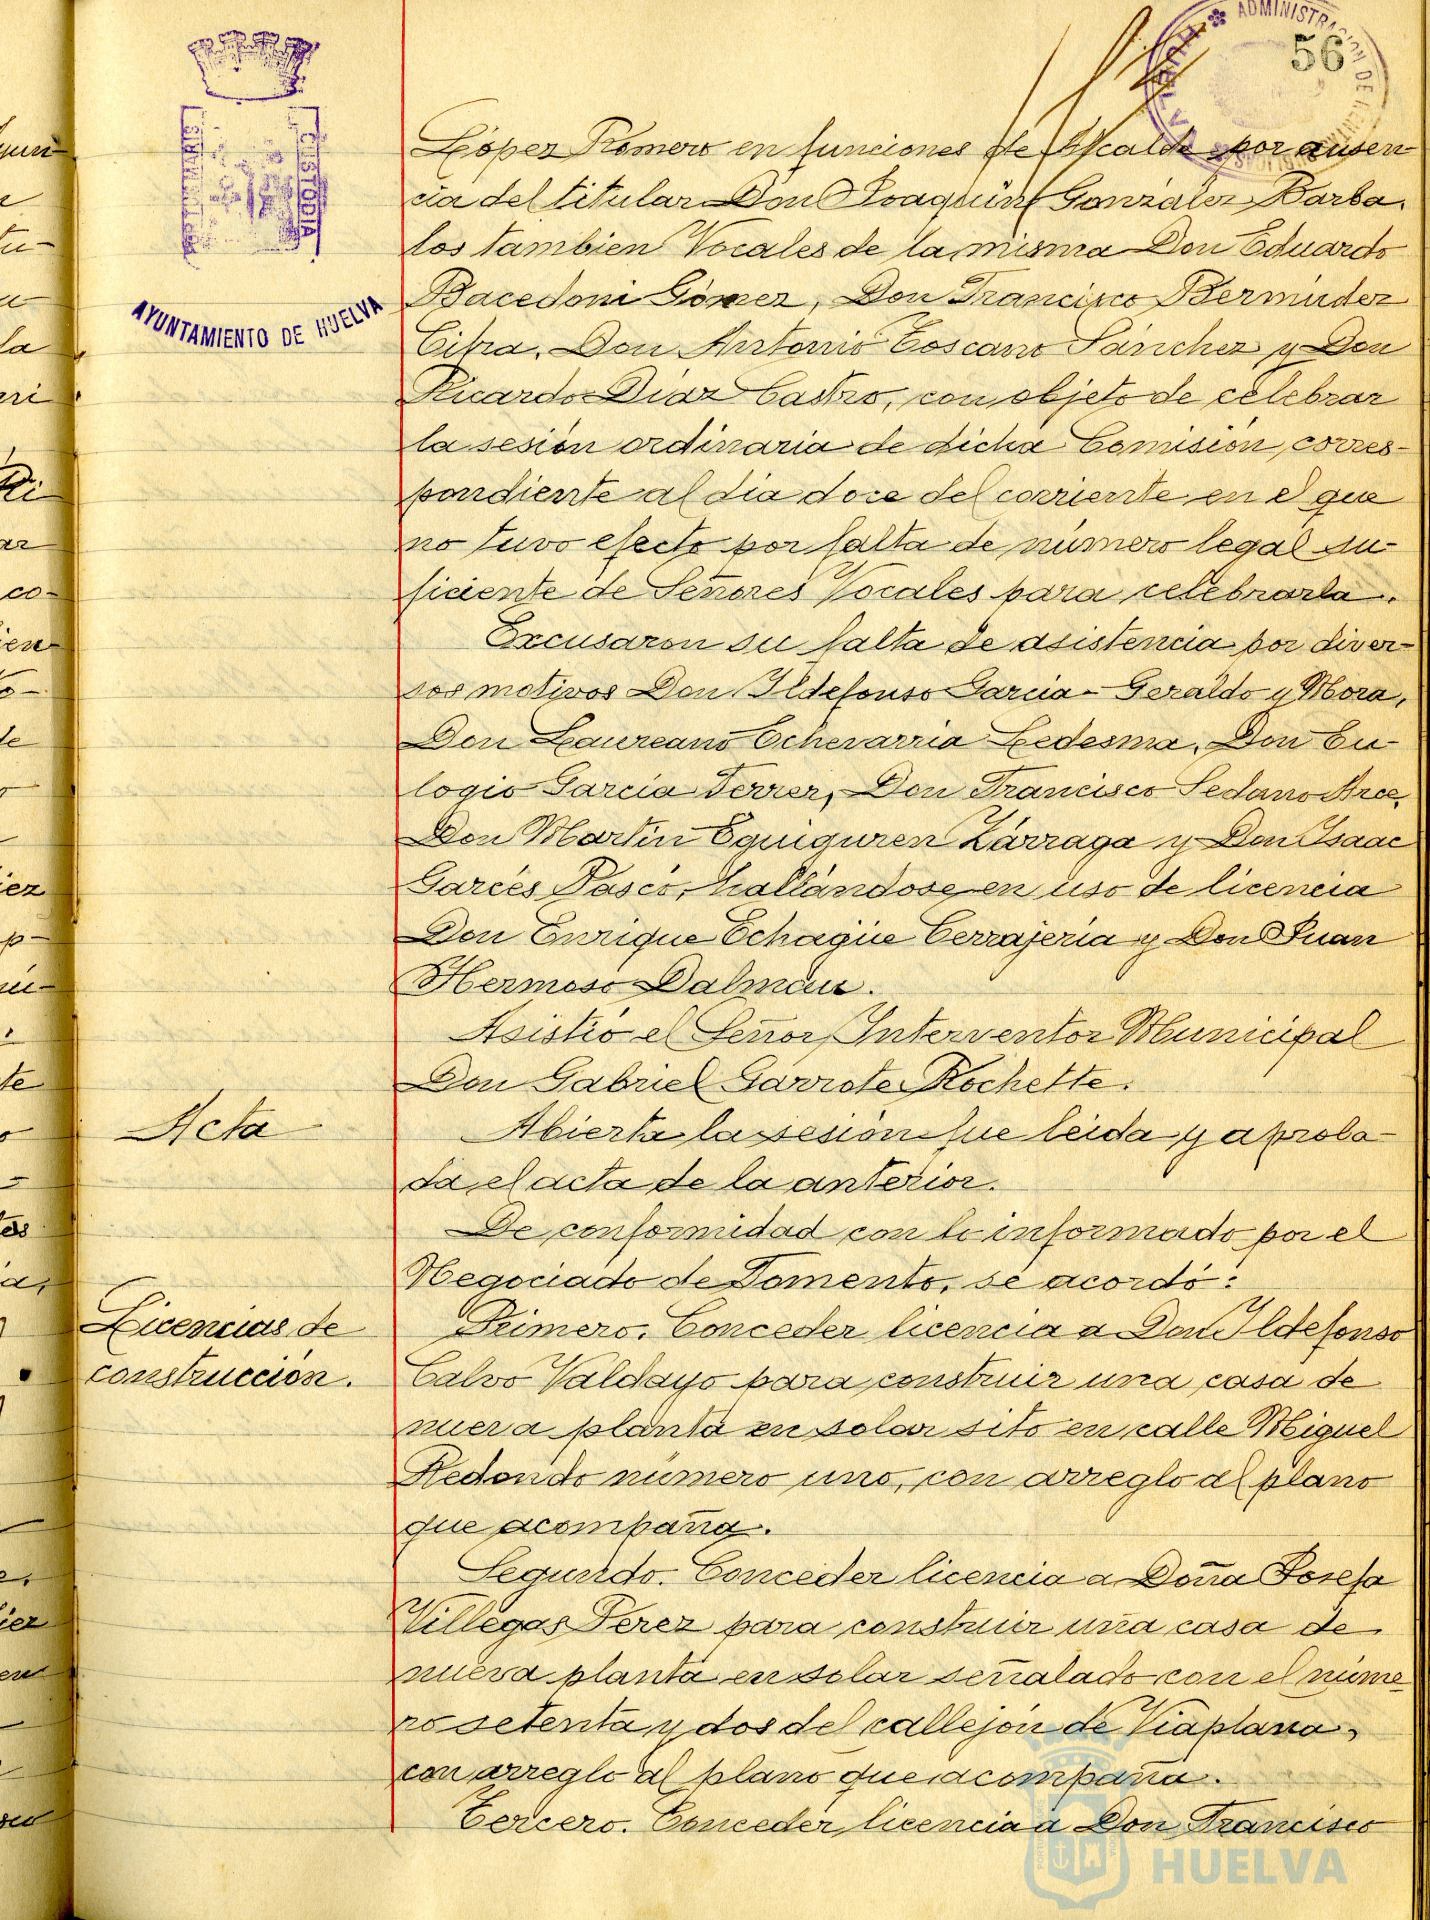 56
ADMINISTRACION DE
HUELVA
PORTUS MARIS
CUSTODIA
AYUNTAMIENTO DE HUELVA
López Romero en funciones de Alcalde por ausen-
cia del titular Don Joaquín González Barba,
los tambien Vocales de la misma Don Eduardo
Bacedoni Gómez, Don Francisco Bermúdez
Cifra, Don Antonio Toscano Sánchez y Don
Ricardo Díaz Castro, con objeto de celebrar
la sesión ordinaria de dicha Comisión, corres-
pondiente al dia doce del corriente en el que
no tuvo efecto por falta de número legal su-
ficiente de Señores Vocales para celebrarla.
Excusaron su falta de asistencia por diver-
sos motivos Don Ildefonso Garcia-Geraldo y Mora,
Don Laureano Echevarria Ledesma, Don Eu-
logio García Ferrer, Don Francisco Sedano Arce,
Don Martin Eguiguren Zárraga y Don Isaac
Garcés Pascó, hallándose en uso de licencia
Don Enrique Echagüe Cerrajería y Don Juan
Hermoso Dalmáu.
Asistió el Señor Interventor Municipal
Don Gabriel Garrote Rochette.
Acta
Abierta la sesión fue leida y aproba-
da el acta de la anterior.
De conformidad con lo informado por el
Negociado de Fomento, se acordó:
Licencias de
construcción.
Primero. Conceder licencia a Don Ildefonso
Calvo Valdayo para construir una casa de
nueva planta en solar sito en calle Miguel
Redondo número uno, con arreglo al plano
que acompaña.
Segundo. Conceder licencia a Doña Josefa
Villegas Perez para construir una casa de
nueva planta en solar señalado con el núme-
ro setenta y dos del callejón de Viaplana,
con arreglo al plano que acompaña.
Tercero. Conceder licencia a Don Francisco
HUELVA